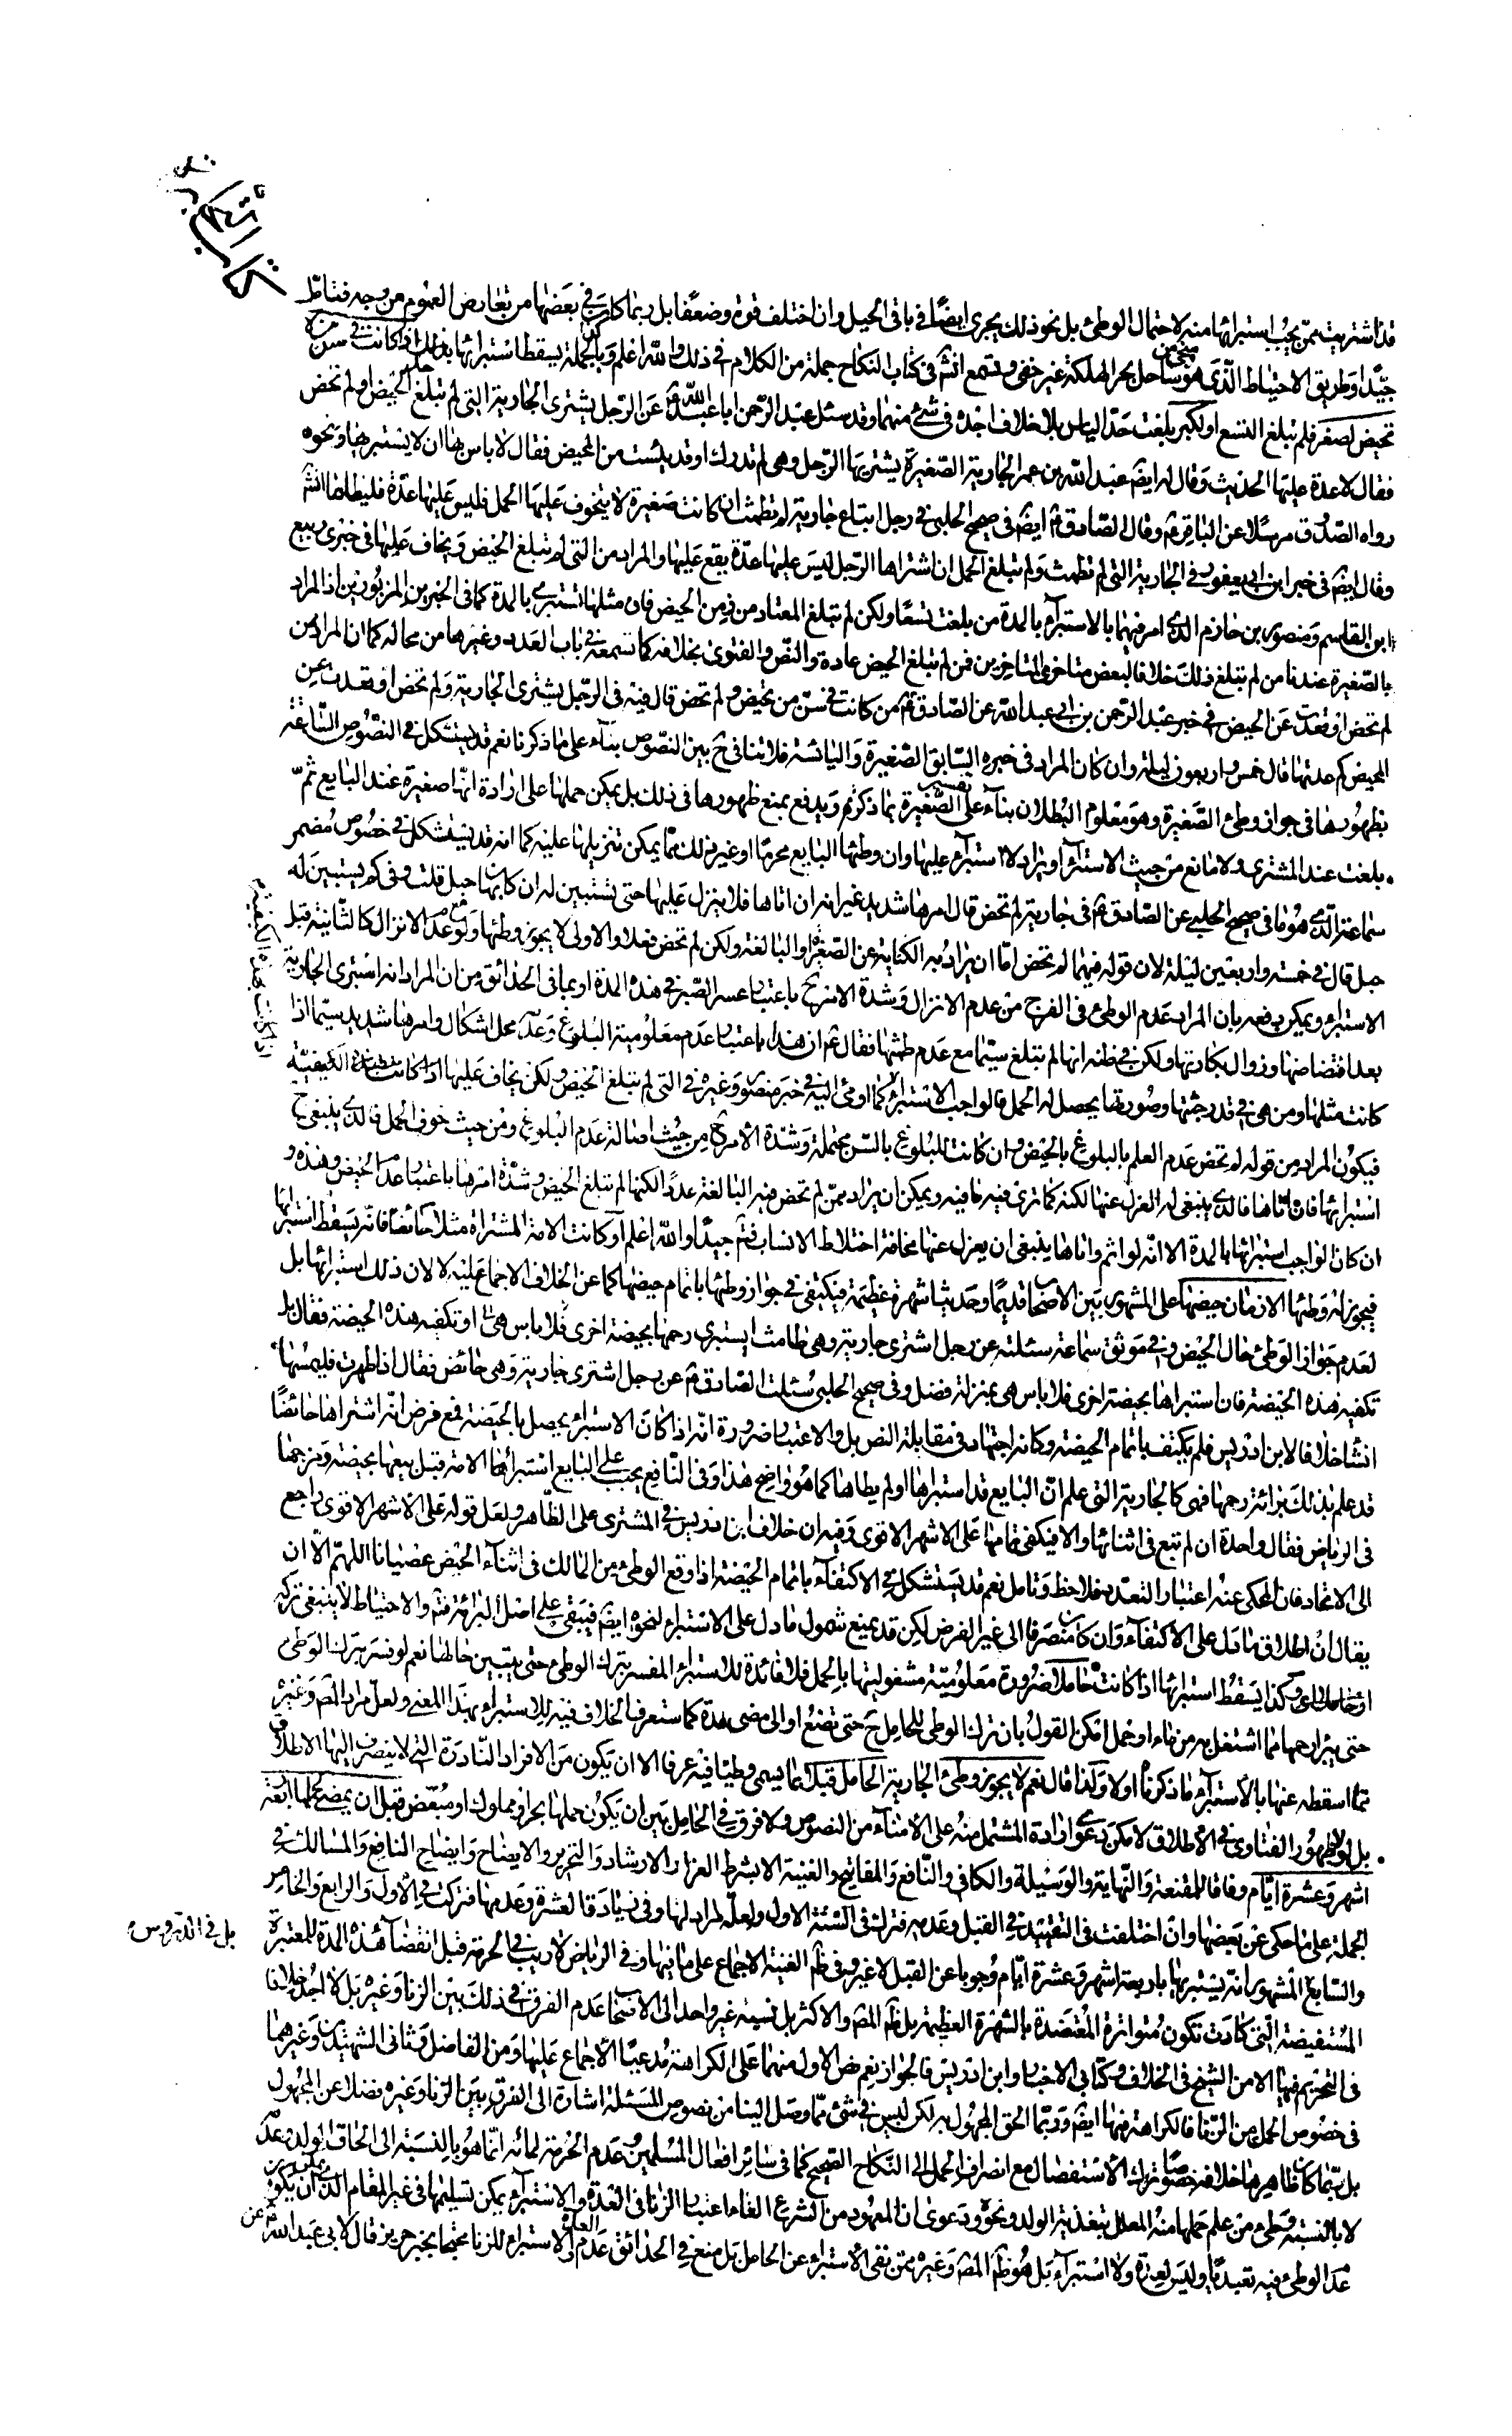 كتاب التجارة
قد اشتريت ممن يجب استبرائها منه لاحتمال الوطئ بل نحو ذلك يجرى ايضا في باقى الحيل وان اختلف قوة وضعفا بل ربما كان في بعضها من تعارض العموم من وجه فتامل
جيدا وطريق الاحتياط الذى هو ساحل بحر الهلكة غير خفى وتسمع انش في كتاب النكاح جملة من الكلام في ذلك والله اعلم وبالجملة يسقط استبرائها اذا كانت في سن من لا
تحيض لصغر فلم تبلغ التسع او لكبر بلغت حد الياس بلا خلاف اجده في شئ منهما وقد سئل عبد الرحمن ابا عبد الله عن الرجل يشترى الجارية التى لم تبلغ الحيض او لم تحض
فقال لا عدة عليها الحديث وقال له ايضا عبد الله بن عمر الجارية الصغيرة يشتريها الرجل وهى لم تدرك او قد يئست من المحيض فقال لا باس بها ان لا يستبرئها ونحوه
رواه الصدوق مرسلا عن الباقر وقال الصادق ايضا في صحيح الحلبى في رجل ابتاع جارية لم تطمث ان كانت صغيرة لا يتخوف عليها الحمل فليس عليها عدة فليطاها انش
وقال ايضا في خبر ابن ابى يعفور في الجارية التى لم تطمث ولم تبلغ الحمل ان اشتراها الرجل ليس عليها عدة يقع عليها والمراد من التى لم تبلغ الحيض ويخاف عليها في خبرى ربيع
ابن القاسم ومنصور بن حازم الذى امر فيهما بالاستبراء بالمدة من بلغت تسعا ولكن لم تبلغ المعتاد من زمن الحيض فان مثلها تستبرء بالمدة كما في الخبرين المزبورين اذ المراد
بالصغيرة عندنا من لم تبلغ ذلك خلافا لبعض متاخرى المتاخرين فمن لم تبلغ الحيض عادة والنص والفتوى بخلافه كما تسمعه في باب العدد وغيرها من محاله كما ان المراد بمن
لم تحض او قعدت عن الحيض في خبر عبد الرحمن بن ابى عبد الله عن الصادق من كانت في سن من تحيض ولم تحض قال فيه في الرجل يشترى الجارية ولم تحض او قعدت عن
المحيض كم عدتها قال خمس واربعون ليلة وان كان المراد في خبره السابق الصغيرة واليائسة فلا تنافى ح بين النصوص بناء على ما ذكرنا نعم قد يستشكل في النصوص السابقة
بظهورها في جواز وطئ الصغيرة وهو معلوم البطلان بناء على تفسير الصغيرة بما ذكرتم ويدفع بمنع ظهورها في ذلك بل يمكن حملها على ارادة انها صغيرة عند البايع ثم
بلغت عند المشترى ولا مانع من حيث الاستبراء او يراد لا استبراء عليها وان وطئها البايع محرما او غير ذلك مما يمكن تنزيلها عليه كما انه قد يستشكل في خصوص مضمر
سماعة الذى هو ما في صحيح الحلبى عن الصادق في جارية لم تحض قال امرها شديد غير انه ان اتاها فلا ينزل عليها حتى تستبين له ان كان بها حبل قلت وفى كم يستبين له
حبل قال في خمسة واربعين ليلة لان قوله فيهما لم تحض اما ان يراد به الكناية عن الصغر او البالغة ولكن لم تحض فعلا والاولى لا يجوز وطئها ولو مع عدم الانزال كالثانية قبل
الاستبراء ويمكن دفعه بان المراد عدم الوطئ في الفرج من عدم الانزال وشدة الامر ح باعتبار عسر الصبر في هذه المدة او بما في الحدائق من ان المراد انه اشترى الجارية
بعد افتضاضها وزوال بكارتها ولكن في ظنه انها لم تبلغ سيما مع عدم طمثها فقال ان هذا باعتبار عدم معلومية البلوغ وعدمه محل اشكال وامرها شديد سيما اذا
كانت مثلها ومن هى في قدر جثتها وصورتها يحصل له الحمل فالواجب الاستبراء كما اومئ اليه في خبر منصور وغيره في التى لم تبلغ الحيض ولكن يخاف عليها
فيكون المراد من قوله لم تحض عدم العلم بالبلوغ بالحيض وان كانت للبلوغ بالسن محتملة وشدة الامر ح من حيث اصالة عدم البلوغ ومن حيث خوف الحمل فالذى ينبغى ح
استبرائها فان اتاها فالذى ينبغى له العزل عنها لكنه كما ترى فيه ما فيه ويمكن ان يراد ممن لم تحض فيه البالغة عددا لكنها لم تبلغ الحيض وشدة امرها باعتبار عدم الحيض وهذه و
ان كان الواجب استبرائها بالمدة الا انه لو اثم واتاها ينبغى ان يعزل عنها مخافة اختلاط الانساب فتم جيدا والله اعلم او كانت الامة المشتراة مثلا حائضا فانه يسقط استبرائها
فيجوز له وطئها الا زمان حيضها على المشهور بين الاصحاب قديما وحديثا شهرة عظيمة فيكتفى في جواز وطئها باتمام حيضها كما عن الخلاف الاجماع عليه لا لان ذلك استبرائها بل
لعدم جواز الوطئ حال الحيض وفى موثق سماعة سئلته عن رجل اشترى جارية وهى طامث ايستبرى رحمها بحيضة اخرى ام تكفيه هذه الحيضة فقال بل
تكفيه هذه الحيضة فان استبراها بحيضة اخرى فلا باس هى بمنزلة فضل وفى صحيح الحلبى سئلت الصادق عن رجل اشترى جارية وهى حائض فقال اذا طهرت فليمسها
انشا خلافا لابن ادريس فلم يكتف باتمام الحيضة وكانه اجتهاد في مقابلة النص بل والاعتبار ضرورة انه اذا كان الاستبراء يحصل بالحيضة فمع فرض انه اشتراها حائضا
قد علم بذلك برائة رحمها فهى كالجارية التى علم ان البايع قد استبراها او لم يطاها كما هو واضح هذا وفى النافع يجب على البايع استبراء الامة قبل بيعها بحيضة ومزجهما
في الرياض فقال واحدة ان لم تبع في اثنائها والا فيكفى تمامها على الاشهر الاقوى وفيه ان خلاف ابن ادريس في المشترى على الظاهر ولعل قوله على الاشهر الاقوى راجع
الى الاتحاد فان المحكى عنه اعتبار التعدد فلاحظ وتامل نعم قد يستشكل في الاكتفاء باتمام الحيضة اذا وقع الوطئ من المالك في اثناء الحيض عصيانا اللهم الا ان
يقال ان اطلاق ما دل على الاكتفاء وان كان منصرفا الى غير الفرض لكن قد يمنع شمول ما دل على الاستبراء لنحوه ايضا فيبقى على اصل البرائة فتم والاحتياط لا ينبغى تركه
او حاملا وكذا يسقط استبرائها اذا كانت حاملا ضرورة معلومية مشغوليتها بالحمل فلا فائدة للاستبراء المفسر بترك الوطئ حتى يتبين حالها نعم لو فسر بترك الوطئ
حتى يبرا رحمها مما اشتغل به من ماء او حمل امكن القول بان ترك الوطى للحامل ح حتى تضع او الى مضى المدة كما ستعرف الخلاف فيه للاستبراء بهذا المعنى ولعل مراد المص وغيره
مما اسقطه عنها بالاستبراء ما ذكرنا اولا ولذا قال نعم لا يجوز وطئ الجارية الحامل قبلا مما يسمى وطيا فيه عرفا الا ان يكون من الافراد النادرة التى لا ينصرف اليها الاطلاق
بل لولا ظهور الفتاوى في الاطلاق لامكن دعوى ارادة المشتمل منه على الامناء من النصوص ولا فرق في الحامل بين ان يكون حملها بحر او مملوك او مبعض قبل ان يمضى لحملها اربعة
اشهر وعشرة ايام وفاقا للمقنعة والنهاية والوسيلة والكافى والنافع والمفاتيح والغنية الا بشرط العزل والارشاد والتحرير والايضاح وايضاح النافع والمسالك في
الجملة على ما حكى عن بعضها وان اختلفت في التقييد في القبل وعدمه فترك في الستة الاول ولعله لمراد لها وفى زيادة العشرة وعدمها فتركت في الاول والرابع والخامس
والسابع المشهور انه يستبريها باربعة اشهر وعشرة ايام وجوبا عن القبل لا غير وفى ظم الغنية الاجماع على ما فيها وفى الرياض لا ريب في الحرمة قبل انقضاء هذه المدة للمعتبرة
المستفيضة التى كادت تكون متواترة المعتضدة بالشهرة العظيمة بل ظم المص والاكثر بل نسبه غير واحد الى الاصحاب عدم الفرق في ذلك بين الزنا وغيره بل لا اجد خلافا
في التحريم فيها الا من الشيخ في الخلاف وكتابى الاخبار وابن ادريس فالجواز نعم نص الاول منهما على الكراهة مدعيا الاجماع عليها ومن الفاضل وثانى الشهيدين وغيرهما
في خصوص الحمل من الزنا فالكراهة فيها ايضا وربما الحق المجهول به لكن ليس في شئ مما وصل الينا من نصوص المسئلة اشارة الى الفرق بين الزنا وغيره فضلا عن المجهول
بل ربما كان ظاهرها خلافه خصوصا ترك الاستفصال مع انصراف الحمل الى النكاح الصحيح كما في سائر افعال المسلمين وعدم الحرمة لمائه انما هو بالنسبة الى الحاق الولد وعدمه
لا بالنسبة وطى من علم حملها منه المعلل بتغذية الولد ونحوه ودعوى ان المعهود من الشرع الغاء اعتبار الزنا في العدة والاستبراء يمكن تسليمها في غير المقام الذى يكون
عدم الوطئ فيه تعبديا وليس لعدة ولا استبراء بل هو ظم المص وغيره ممن نفى الاستبراء عن الحامل بل منع في الحدائق عدم العدة والاستبراء للزنا محتجا بخبر حريز قال لابى عبد الله عن
بل في الدروس